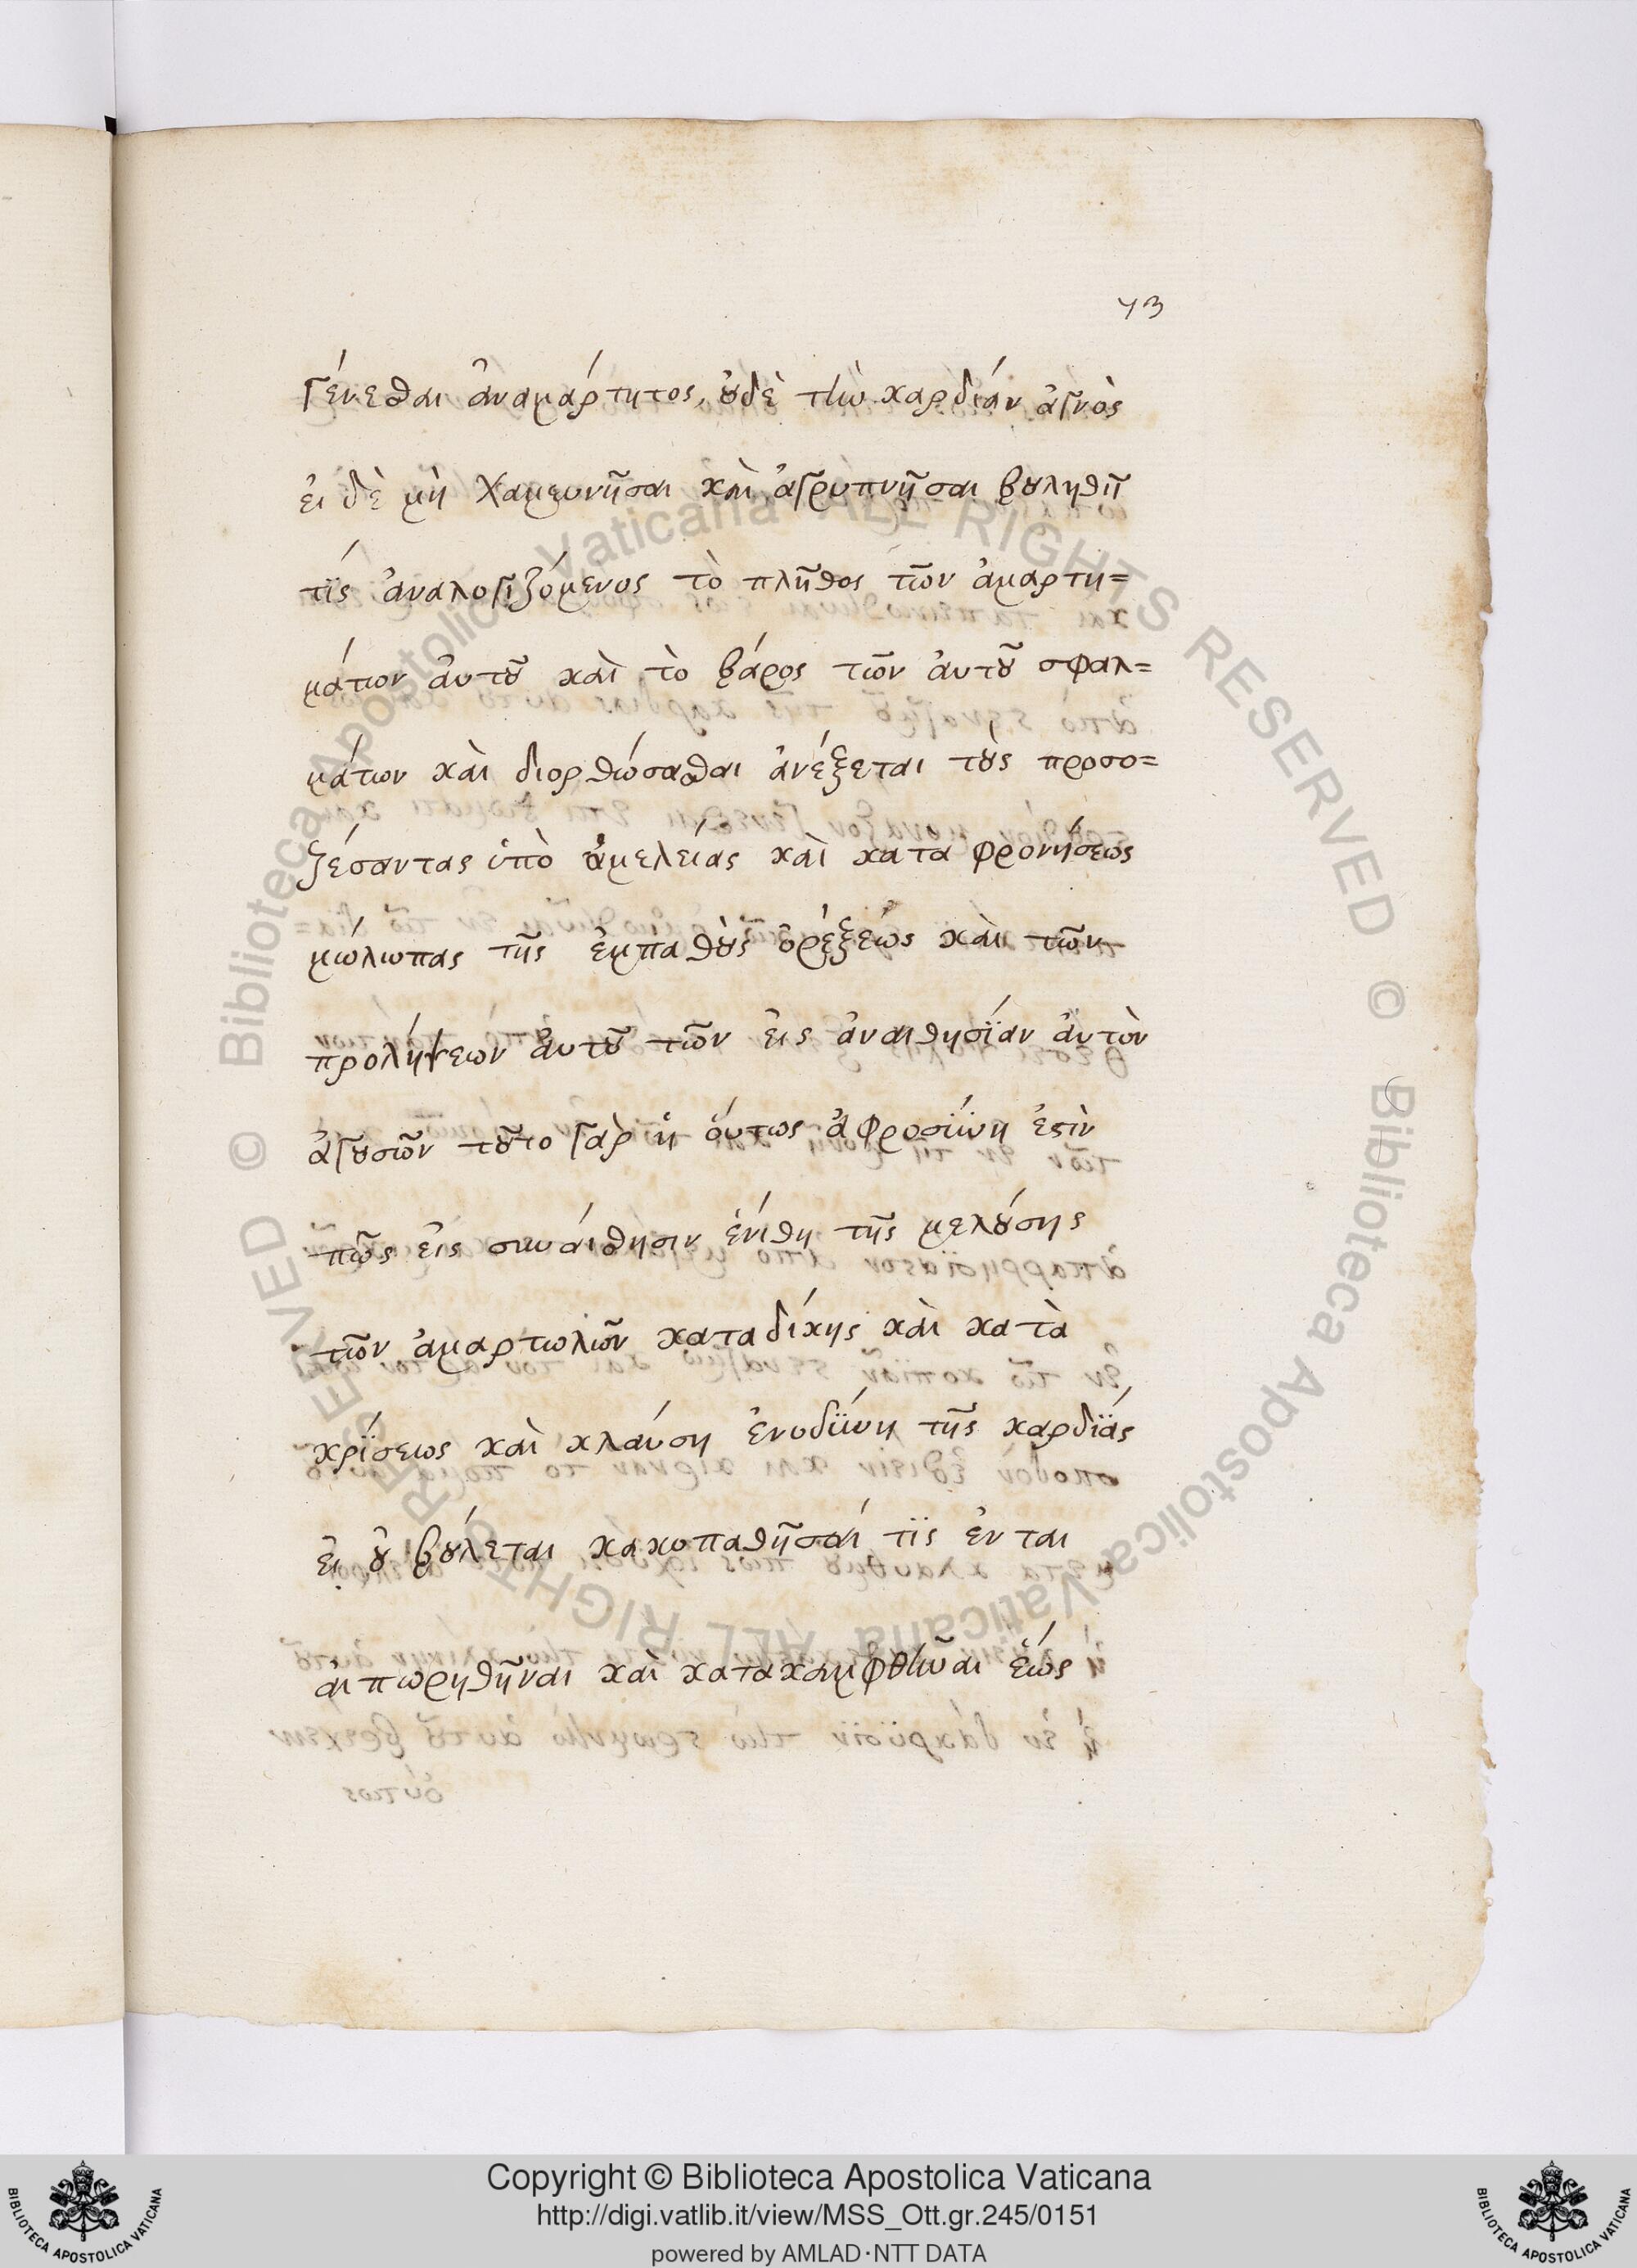 73
γένεσθαι ἀναμάρτητος, ȣδὲ τὴν καρδίαν ἁγνὸς
ἐι δὲ μὴ χαμευνῆσαι καὶ ἀγρυπνῆσαι βȣληθῆ
τίς ἀναλογιζόμενος τὸ πλῆθος τῶν ἁμαρτη=
μάτων ἀυτȣ͂ καὶ τὸ βάρος τῶν ἀυτȣ͂ σφαλ=
μάτων καὶ διορθώσασθαι ἀνέξεται τȣ̀ς προσο=
ζέσαντας ὑπὸ ἀμελείας καὶ κατα φρονήσεως
μώλωπας τῆς ἐμπαθȣ̀ς ὀρέξεως καὶ τῶν
προλήψεων ἀυτȣ͂ τῶν ἐις ἀναισθησΐαν ἀυτὸν
ἀγȣσῶν τȣ͂το γὰρ ἡ ὄυτως ἀφροσΰνη ἐστὶν
πῶς ἐις συναίσθησιν ἐνίθη τῆς μελȣ́σης
τῶν ἁμαρτωλῶν καταδίκης καὶ κατὰ
κρΐσεως καὶ κλάυση ἐνοδΰνη τῆς καρδΐας
ἐι ȣ̓ βȣ́λεται κακοπαθῆσαί τϊς ἐν ται
αιπωρηθῆναι καὶ κατακαμφθῆναι ἕως
Copyright © Biblioteca Apostolica Vaticana
http://digi.vatlib.it/view/MSS_Ott.gr.245/0151
powered by AMLAD·NTT DATA
BIBLIOTECA APOSTOLICA VATICANA
BIBLIOTECA APOSTOLICA VATICANA
© Biblioteca Apostolica Vaticana ALL RIGHTS RESERVED © Biblioteca Apostolica Vaticana ALL RIGHTS RESERVED